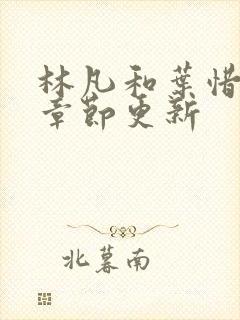 林凡和葉惜
章節更新
北暮南